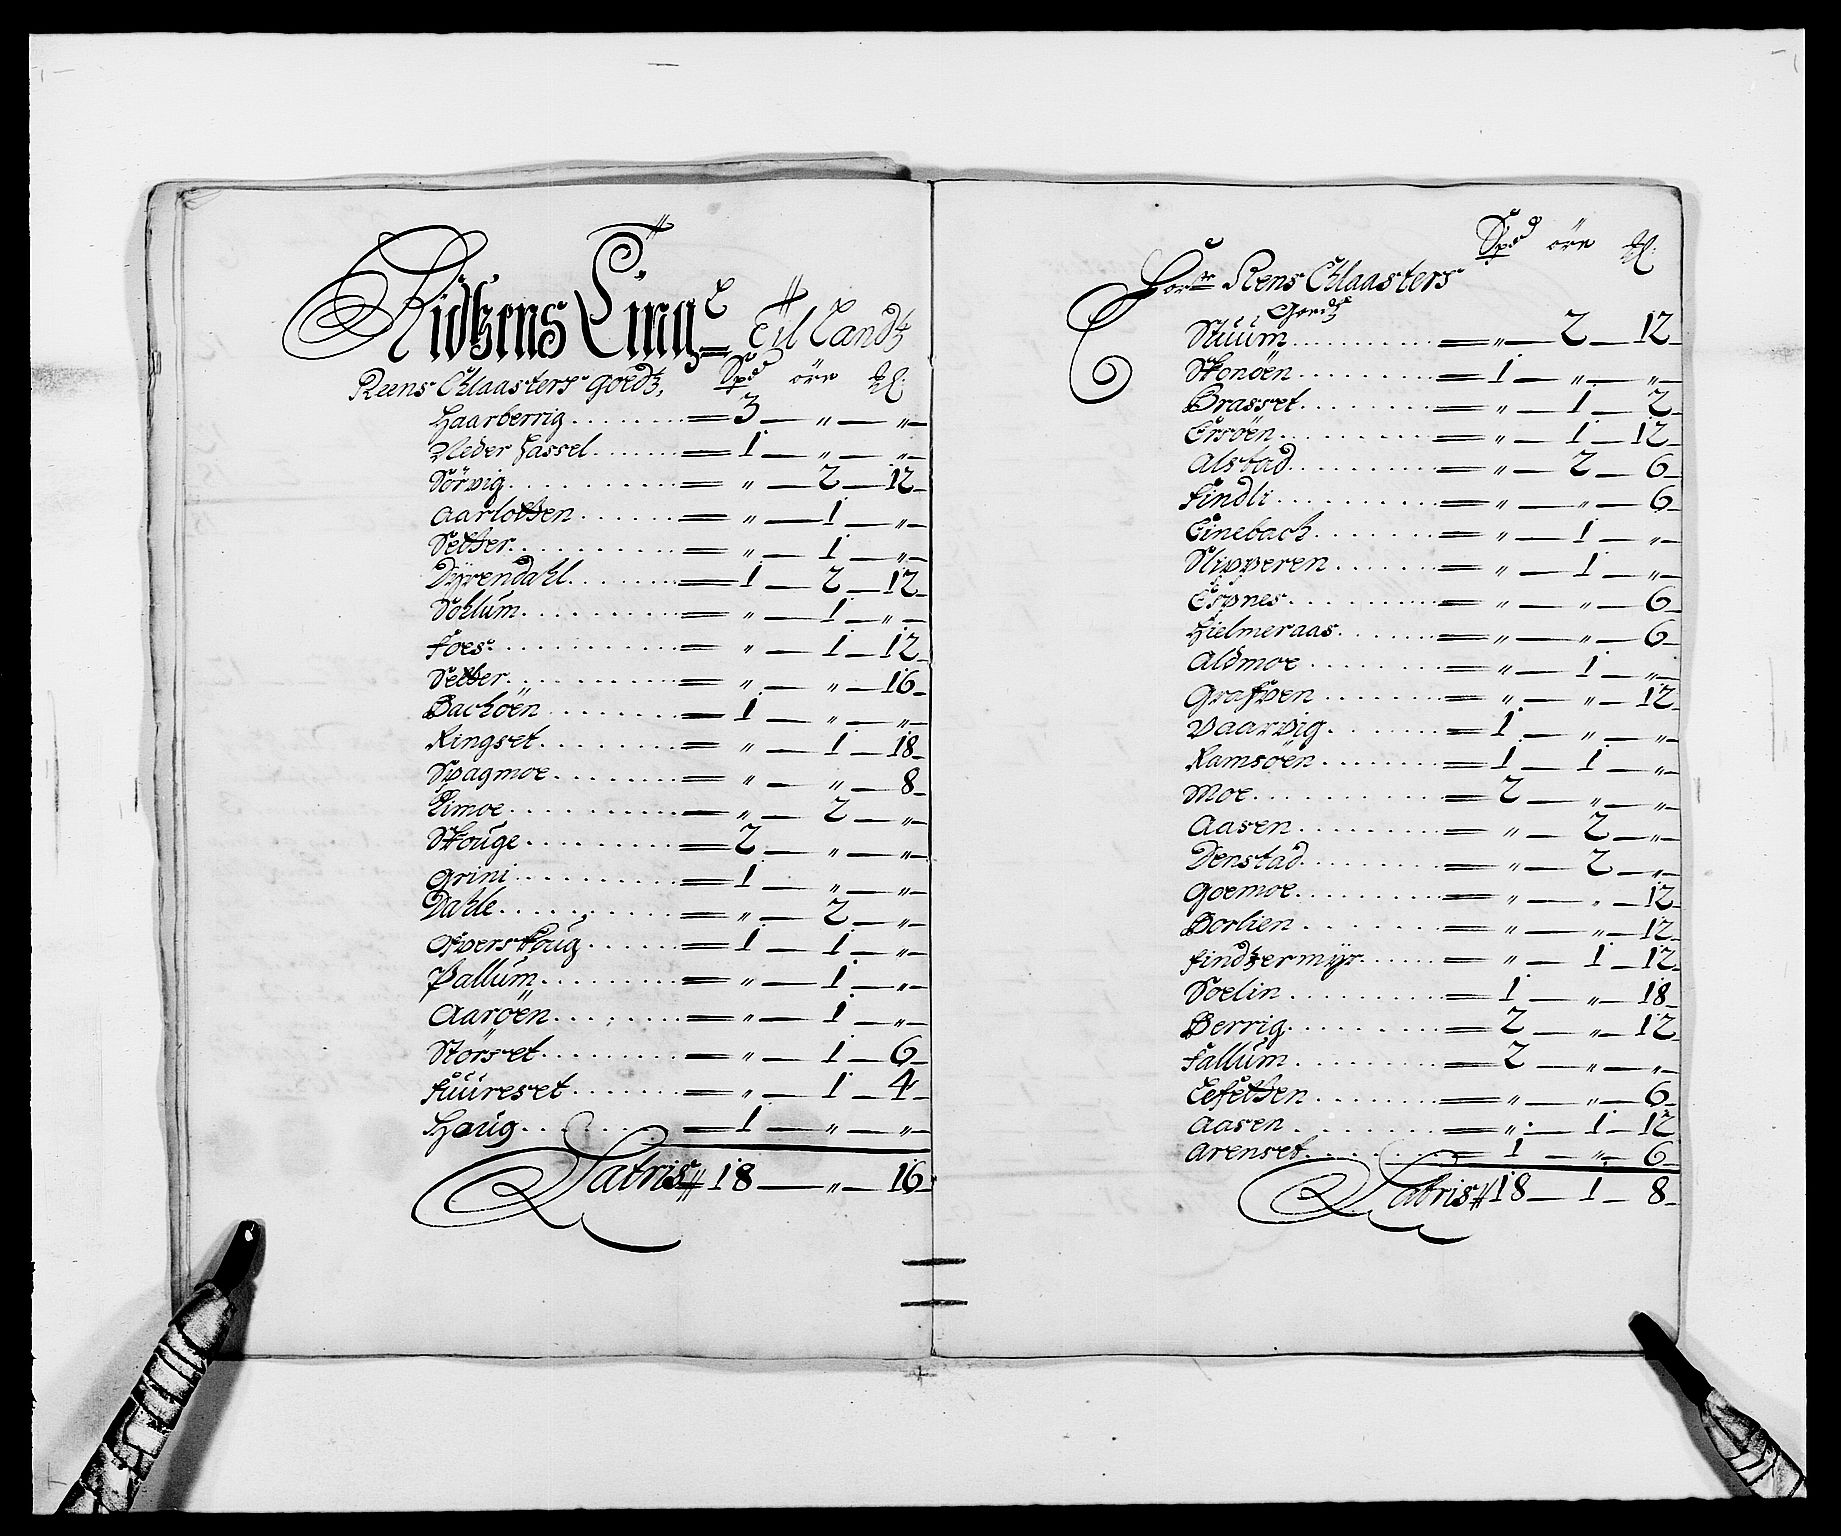 Ridtzens Ting: Til Landtz
Reens Chlaasters goedtz, Spd öre
Haarberrig ═ 3 — „ — „
Neder Hassel ═ 1 — „ — „
Sörvig ═ „ — 2 — 12
Aarlotten ═ „ — 1 — „
Setter ═ „ — 1 — „
Dyrendahl ═ 1 — 2 — 12
Sohlum ═ „ — 1 — „
Foes ═ „ — 1 — 12
Setter ═ „ — „ — 16
Bachöen ═ 1 — „ — „
Ringset ═ „ — 1 — 18
Spagmoe ═ „ — „ — 8
Limoe ═ „ — 2 — „
Skouge ═ 2 — „ — „
Grini ═ 1 — „ — „
Dahle ═ „ — 2 — „
Ofverskoug ═ 1 — 1 — „
Pallum ═ „ — 1 — „
Aaröen ═ „ — 1 — „
Störset ═ „ — 1 — 6
Fuureset ═ „ — 1 — 4
Haug ═ 1 — „ — „
Latris 18 — „ — 16
Spd öre
For:ne Rens Chlaasters
Goedtz
Stuum ═ „ — 2 — 12
Skonöen ═ 1 — „ — „
Brasset ═ „ — 1 — 2
Ersöen ═ „ — 1 — 12
Alstad ═ „ — 2 — 6
Findli ═ „ — „ — 6
Einebach ═ „ — 1 — „
Slipperen ═ „ — 1 — „
Espnes ═ „ — „ — 6
Hielmeraas ═ „ — „ — 6
Aldmoe ═ „ — 1 — „
Grafven ═ „ — „ — 12
Vaarvig ═ 1 — „ — „
Ramsöen ═ 1 — 1 — „
Moe ═ 2 — „ — „
Aasen ═ „ — 2 — „
Denstad ═ „ — 2 — „
Goemoe ═ „ — „ — 12
Borlien ═ „ — „ — 12
Findzermyr ═ „ — 1 — 12
Soelin ═ 1 — „ — 18
Berrig ═ 2 — „ — 12
Fallum ═ 2 — „ — „
Eefetten ═ „ — „ — 6
Aasen ═ „ — 1 — 12
Arenset ═ 1 — „ — 6
Latris 18 — 1 — 8